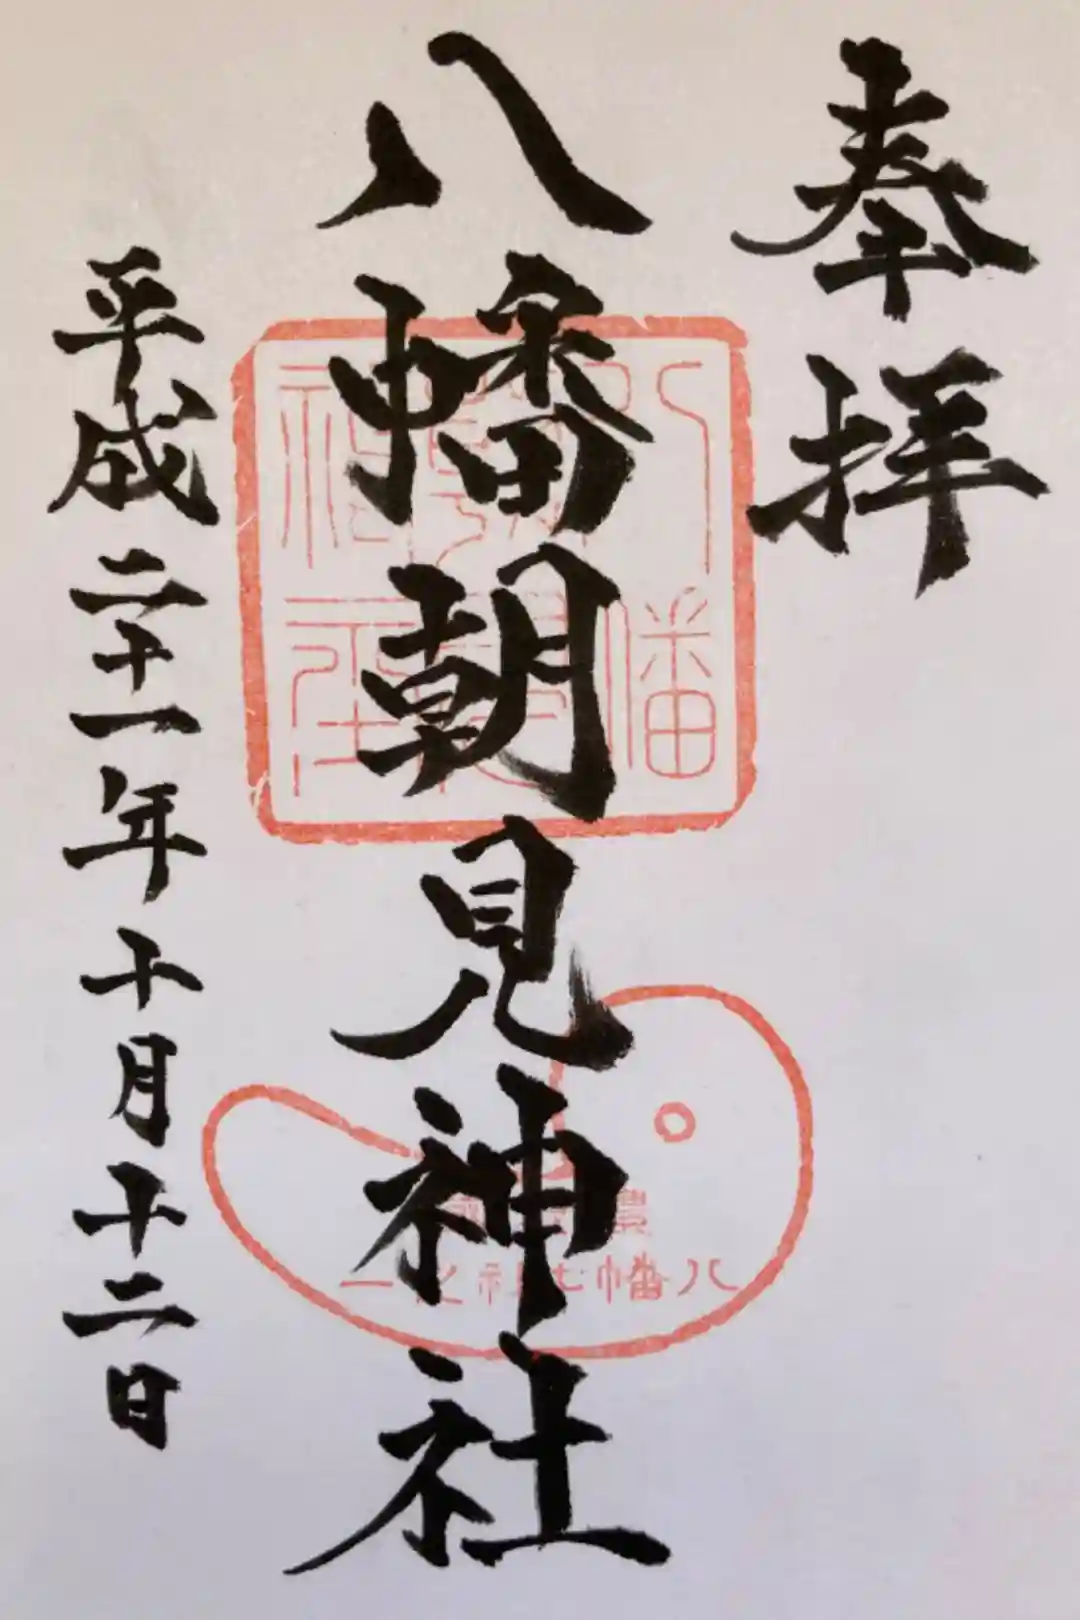 奉拝
八幡朝見神社
平成二十一年十月十二日
八幡朝見神社
八幡七社之一